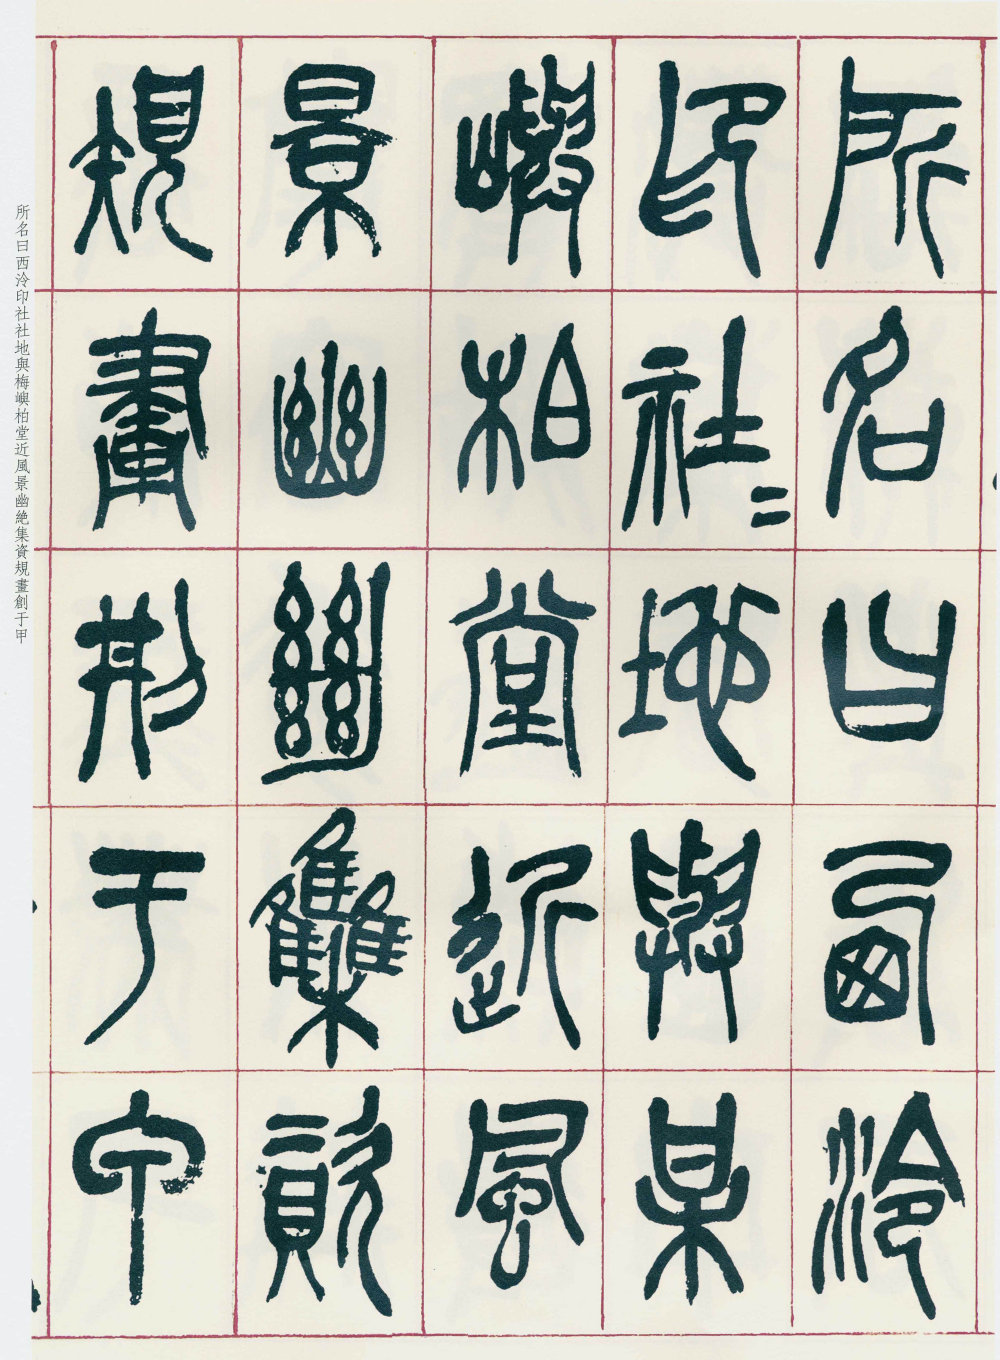 所名曰西泠
印社〻地與某
嶼柏堂近風
景幽㡭集資
規畫刱于甲
所名曰西泠印社社地與梅嶼柏堂近風景幽絶集資規畫創于甲